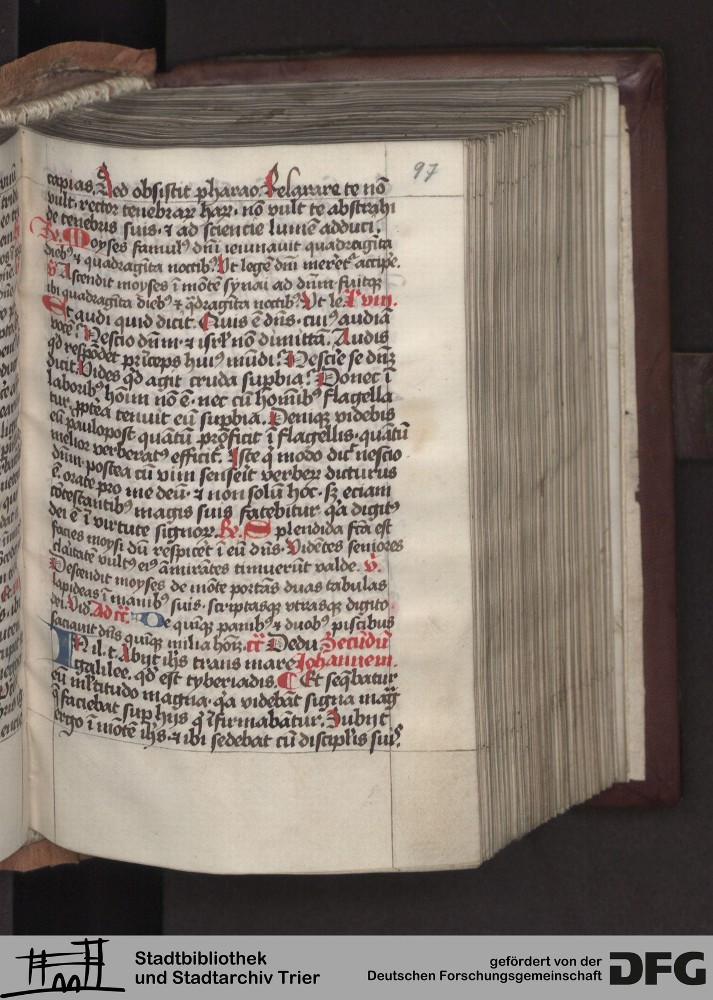 97
capias. Sed obsistit pharao. Relaxare te nō
vult. rector tenebraꝝ haꝝ. nō vult te abstrahi
de tenebris suis. ⁊ ad scientie lumē adduci.
Rꝭ. Moyses famulꝰ dn̄i ieiunauit quadragīta
diebꝰ ⁊ quadragīta noctibꝰ. Vt legē dn̄i meret᷑ accipe.
v̄. Ascendit moyses ī mōte synai ad dn̄m fuitqꝫ
ibi quadragīta diebꝰ ⁊ q̄dragīta noctibꝰ. Vt le. L. viii.
Et audi quid dicit. Quis ē dn̄s. cuiꝰ audiā
vocē? Nescio dn̄m. ⁊ isrl̄ nō dimittā. Audis
qd̄ respōdet prīceps huiꝰ mūdi? Nescīe se dn̄ꝫ
dicit. Vides qd̄ agit cruda suꝑbia? Donec ī
laboribꝰ hoīm nō ē. nec cū hoībꝰ flagella
tur. ꝓpt̄ea tenuit eū suꝑbia. Deniqꝫ videbis
eū paulopost quātū proficit ī flagellis. quātū
melior verberatꝰ efficit. Iste q̄ modo dic̄ nescio
dn̄m. postea cū vim senserit verbeꝝ dicturus
ē. orate pro me deū. ⁊ non solū hoc. sꝫ eciam
cōtestantibꝰ magis suis fatebitur. qꝛ digitꝰ
dei ē ī virtute signoꝝ. Rꝭ. Splendida fc̄a est
facies moysi dū respicēt ī eū dn̄s. Vidētes seniores
claritatē vultꝰ eiꝰ āmirātes timuerūt valde. v̄.
Descendit moyses de mōte portās duas tabulas
lapideas ī manibꝰ suis. scriptasqꝫ vtrasqꝫ digito
dei. Vid. Ad cꝭ. De quīqꝫ panibꝰ ⁊ duobꝰ piscibus
saciauit dn̄s quīqꝫ milia hoīꝫ. cꝭ Dedu Secūdū
In il. t. Abijt ih̄s trans mare Iohannem.
galilee. qd̄ est tyberiadis. Et seq̄batur
eū ml̄titudo magna. qꝛ videbāt signa mag̅
q̄ faciebat suꝑ hijs q̄ īfirmabātur. Subijt
ergo ī mōtē ih̄s. ⁊ ibi sedebat cū discipl̄is suis.
Stadtbibliothek
und Stadtarchiv Trier
gefördert von der
Deutschen Forschungsgemeinschaft
DFG